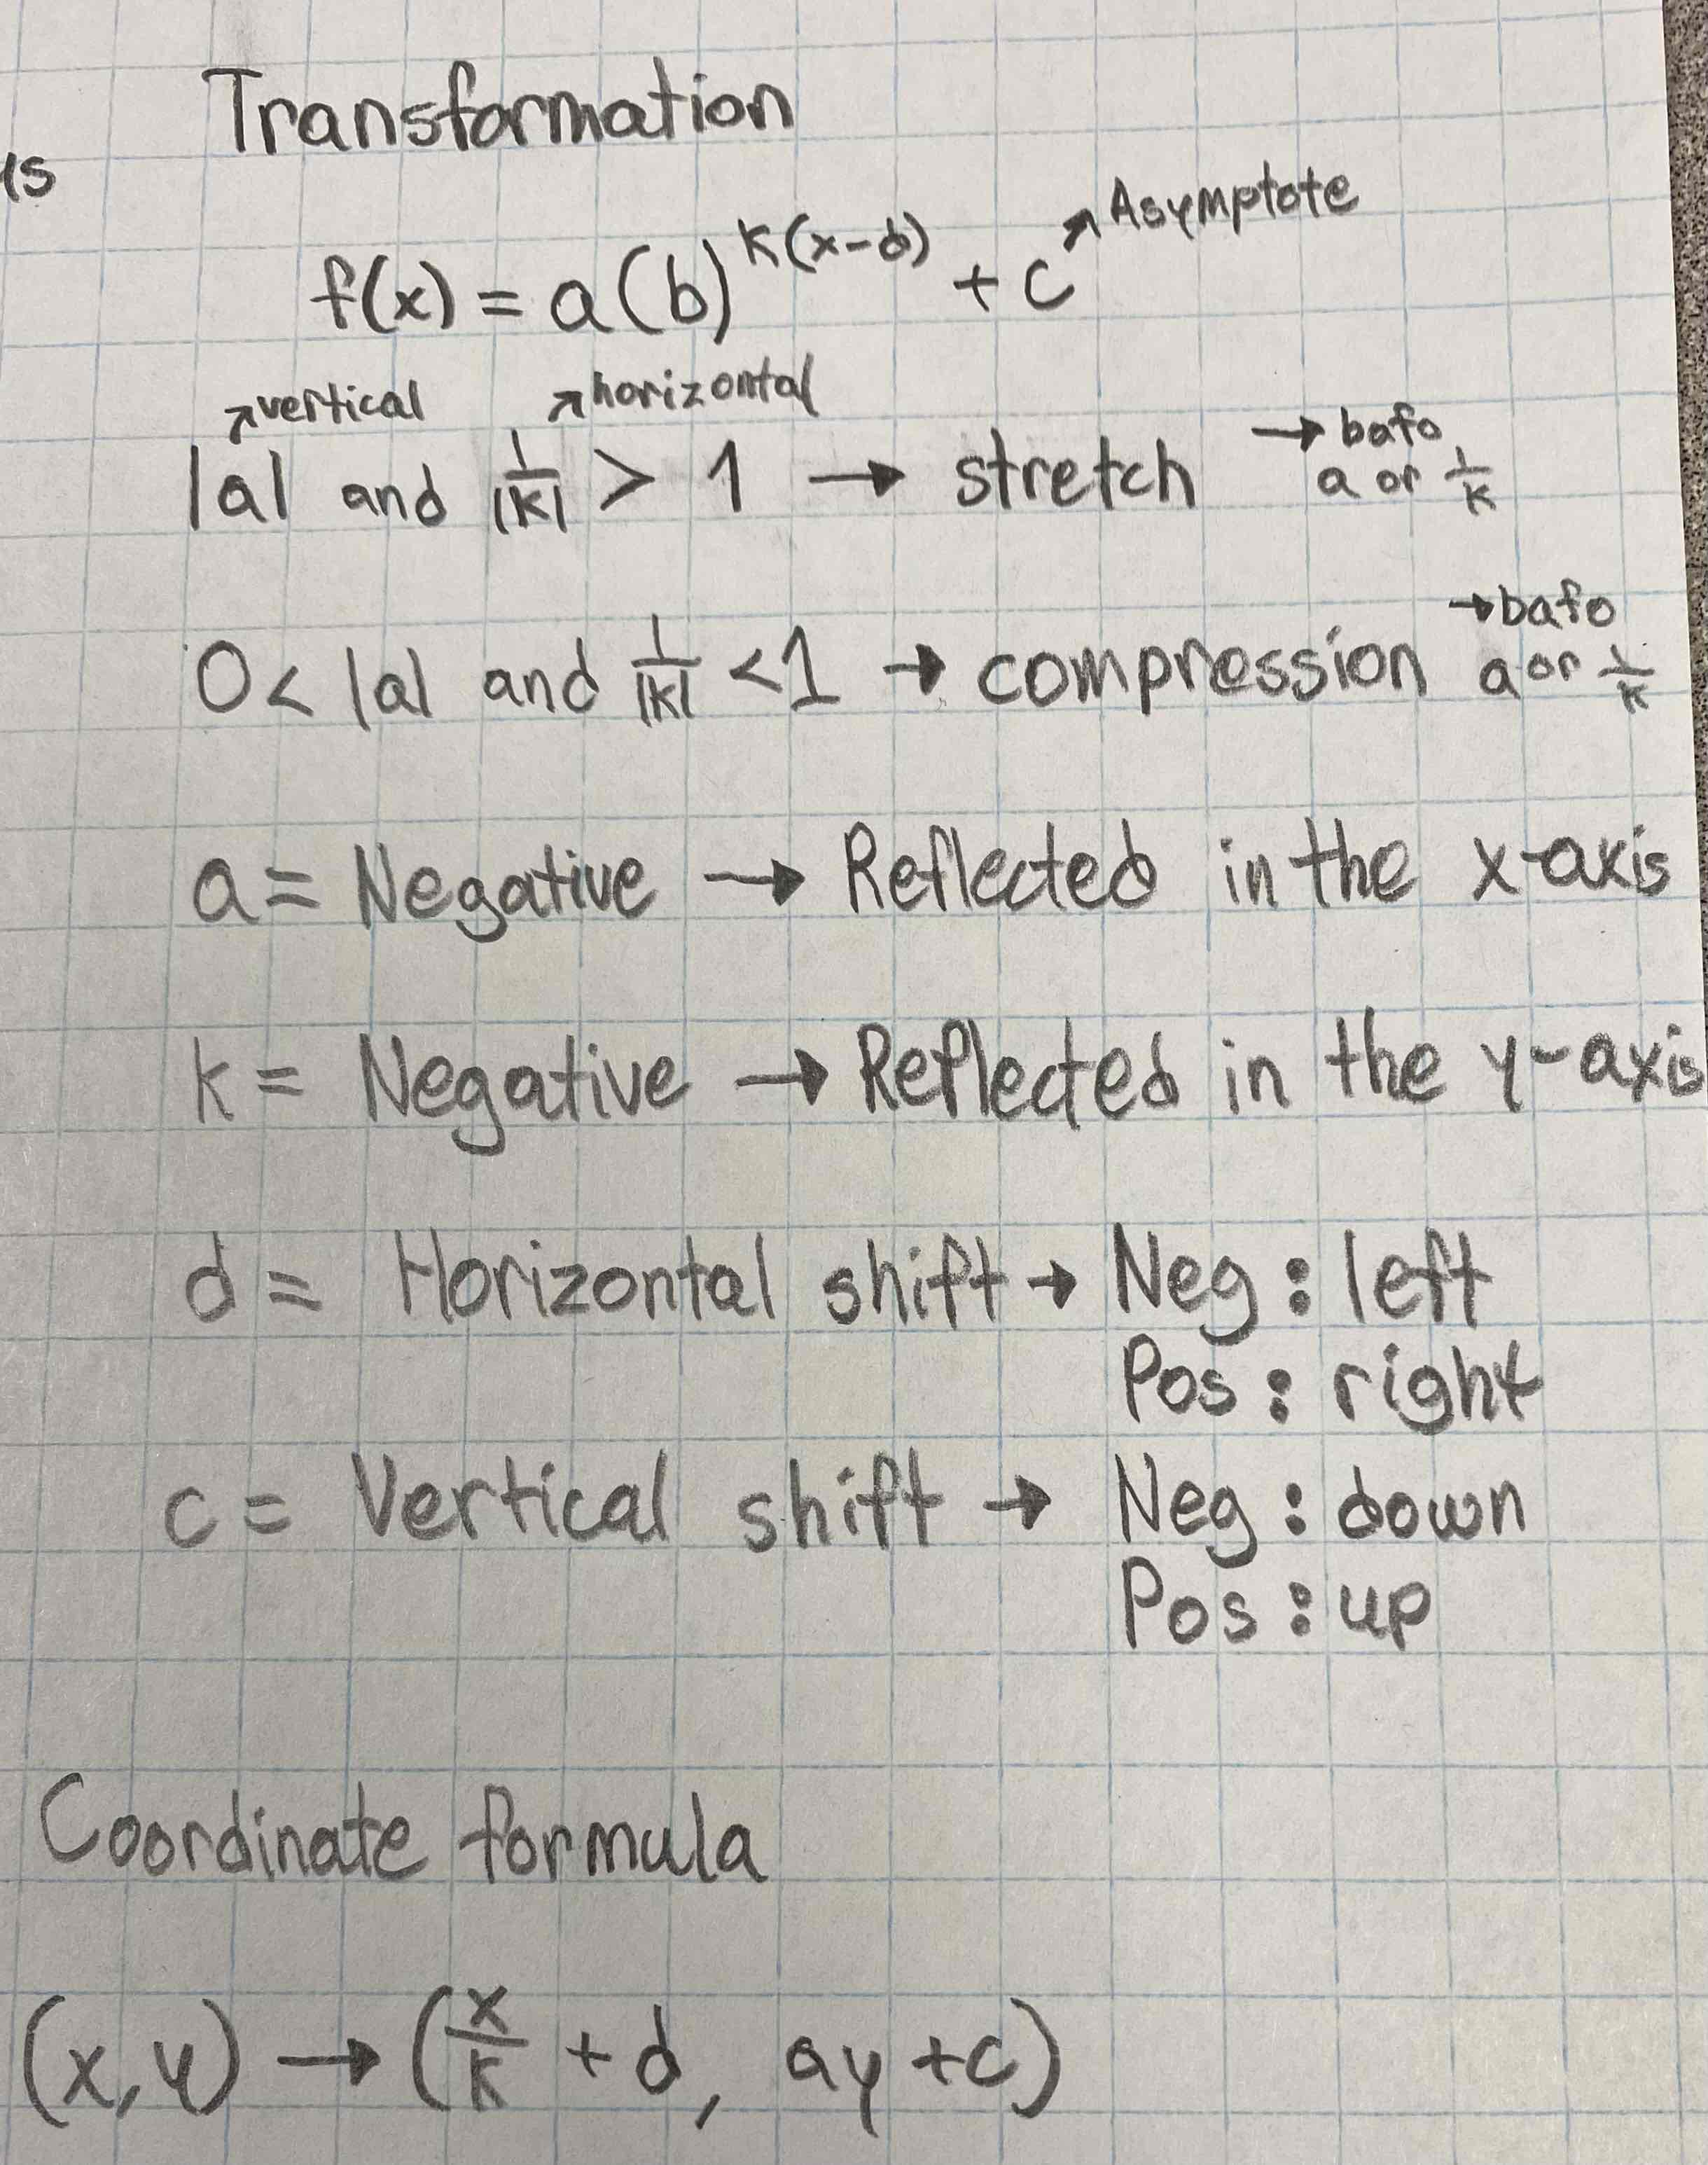 Transformation
is
f(x) = a(b)^k(x-d) + c ↗Asymptote
↗vertical ↗horizontal
|a| and 1/|k| > 1 → stretch → bafo a or 1/k
0 < |a| and 1/|k| < 1 → compression → bafo a or 1/k
a = Negative → Reflected in the x-axis
k = Negative → Reflected in the y-axis
d = Horizontal shift → Neg : left
Pos : right
c = Vertical shift → Neg : down
Pos : up
Coordinate formula
(x, y) → (x/k + d, ay + c)